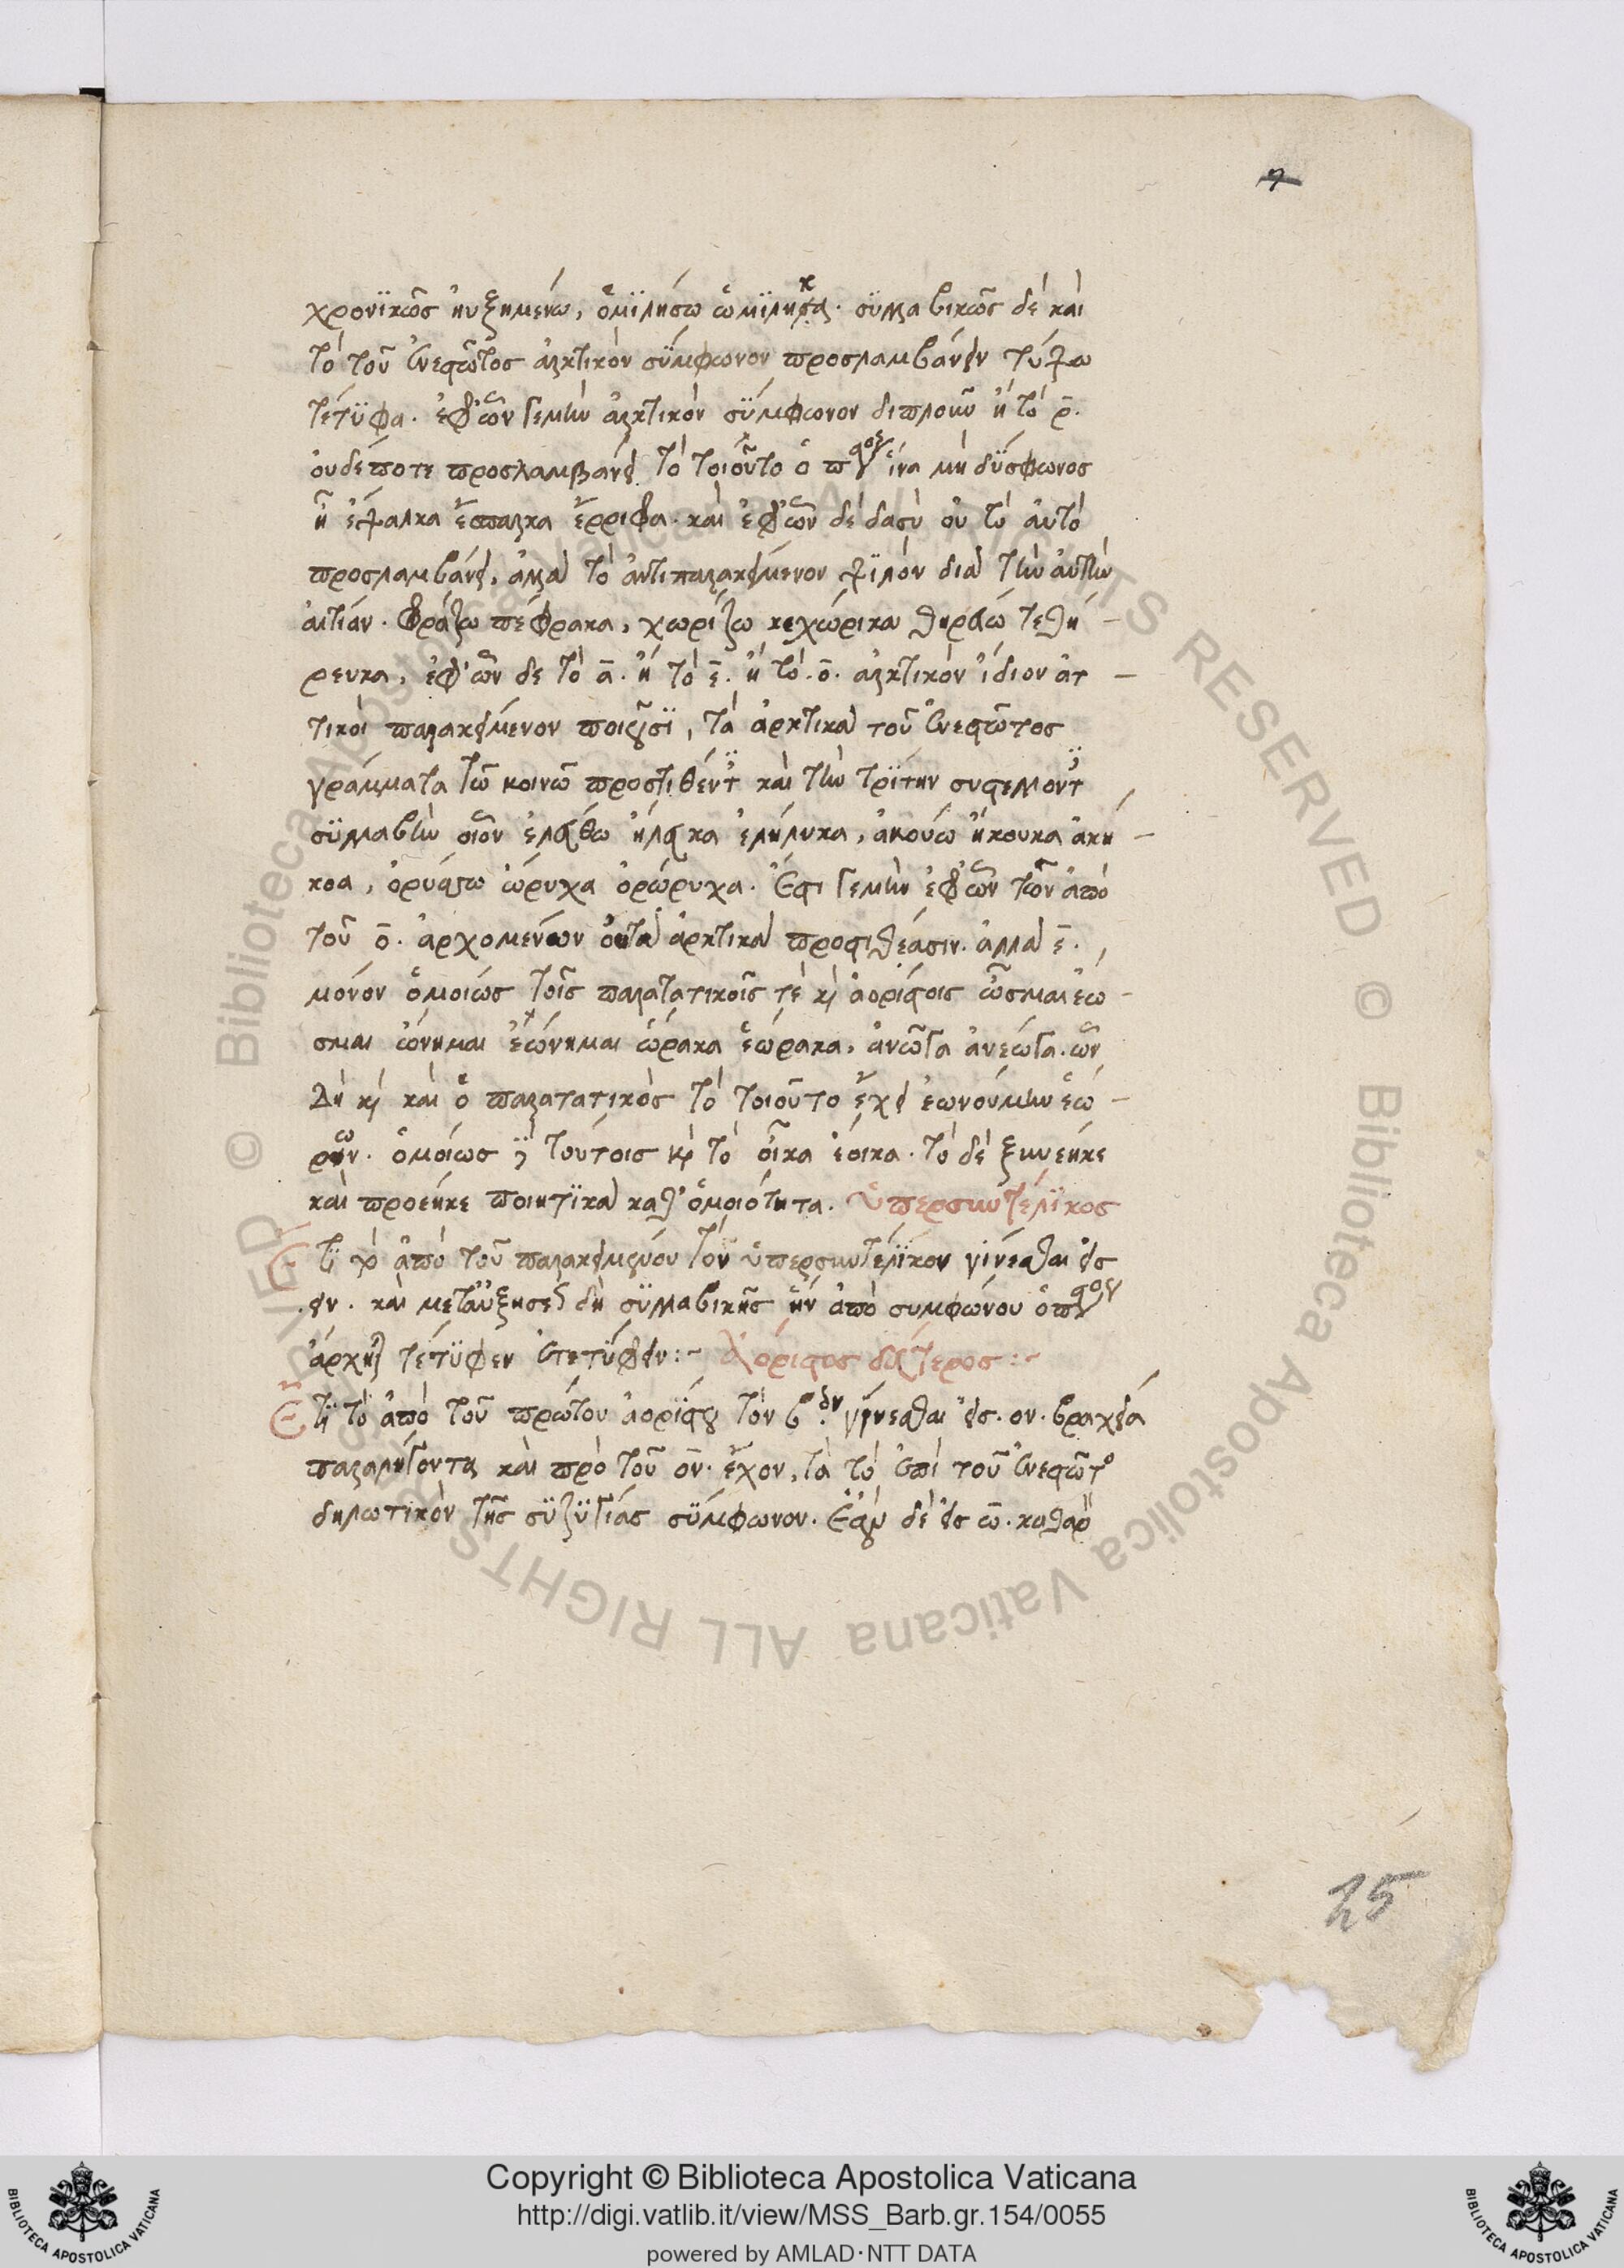 χρονϊκῶς ηὐξημένω, ὁμϊλήσω ὡμϊληκα· σϋλλαβικῶς δὲ καὶ
τὸ τοῦ ἐνεστῶτος ἀρκτικὸν σϋμφωνον προσλαμβάνειν τύπτω
τέτϋφα. ἐφ' ὧν γεμὴν ἀρκτικὸν σϋμφωνον διπλοῦν ἢ τὸ ρ̄.
οὐδέποτε προσλαμβάνει τὸ τοιοῦτο ὁ ἵνα μὴ δϋσφωνος
ἦ ἔψαλκα ἔσπαρκα ἔρριφα. καὶ ἐφ' ὧν δὲ δασὺ οὐ τὸ αὐτὸ
προσλαμβάνει, ἀλλὰ τὸ ἀντιπαρακείμενον ψϊλὸν διὰ τὴν αὐτὴν
αἰτίαν. φράζω πέφρακα, χωρίζω κεχώρικα θηρεύω τεθή-
ρευκα, ἐφ' ὧν δε τὸ ᾱ. ἢ τὸ ε̄. ἢ τὸ. ο̄. ἀρκτικὸν ἴδιον ἀτ-
τικοὶ παρακείμενον ποιοῦσϊ, τὰ ἀρκτικὰ τοῦ ἐνεστῶτος
γράμματα τῶ κοινῶ προστιθέντ καὶ τὴν τρϊτην συστελλοντ
σϋλλαβὴν οἷον ἐλεύθω ἤλευκα ἐλήλυκα, ἀκούω ἤκουκα ἀκή-
κοα, ὀρύττω ὤρυχα ὀρώρυχα. Ἔστι γεμὴν ἐφ' ὧν τῶν ἀπὸ
τοῦ ο̄. ἀρχομένων οὐτὰ ἀρκτικὰ προστιθέασιν. ἀλλὰ ε̄.
μόνον ὁμοίως τοῖς παρατατικοῖς τὲ κὶ ἀορίστοις ὦσμαι ἔω-
σμαι ὤνημαι ἐώνημαι ὥρακα ἑώρακα, ἀνῶγα ἀνέωγα. ὧν
Δὴ κὶ καὶ ὁ παρατατικὸς τὸ τοιοῦτο ἔχει ἐωνούμην ἑώ-
ρων. ὁμοίως τούτοις κὶ τὸ οἶκα ἔοικα. τὸ δὲ ξυνεῆκε
καὶ προεῆκε ποιητϊκὰ καθ' ὁμοιότητα. Ὑπερσυντέλϊκος
Ἔτϊ ἀπὸ τοῦ παρακειμένου τὸν ὑπερσυντέλϊκον γίνεσθαι εἰς
.ειν. καὶ μεταὐξήσεως δὴ σϋλλαβικῆς ἢν ἀπὸ συμφώνου
ἄρχηται τέτϋφεν ἐτετϋφειν:~ Ἀόριστος δεύτερος:~
Ἔτϊ τὸ ἀπὸ τοῦ πρώτου ἀορϊστου τὸν β. γίνεσθαι εἰς. ον. βραχεία
παραλήγοντα καὶ πρὸ τοῦ ο̄ν. ἔχον, τὰ τὸ ἐπὶ τοῦ ἐνεστῶτο
δηλωτικὸν τῆς σϋζϋγίας σϋμφωνον. Ἐὰν δὲ εἰς ω̄. καθαρ
25
Copyright © Biblioteca Apostolica Vaticana
http://digi.vatlib.it/view/MSS_Barb.gr.154/0055
powered by AMLAD·NTT DATA
BIBLIOTECA APOSTOLICA VATICANA
BIBLIOTECA APOSTOLICA VATICANA
© Biblioteca Apostolica Vaticana ALL RIGHTS RESERVED © Biblioteca Apostolica Vaticana ALL RIGHTS RESERVED